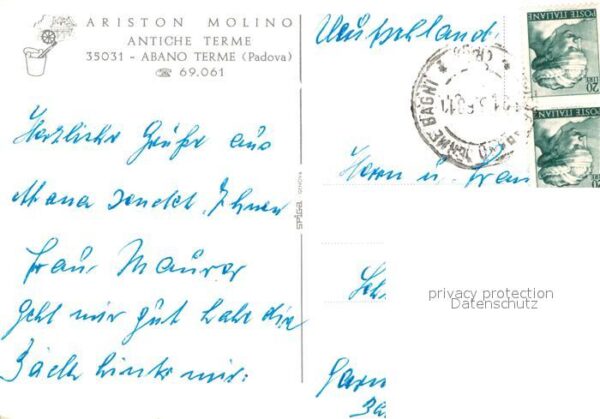 ARISTON MOLINO
ANTICHE TERME
35031 - ABANO TERME (Padova)
☎ 69.061
Herzliche Grüße aus
Abano sendet Ihnen
Frau Maurer
Geht mir gut habe die
Bäder hinter mir.
Deutschland
Herrn u. Frau
POSTE ITALIANE
LIRE 20
POSTE ITALIANE
TERME BAGNI
privacy protection
Datenschutz